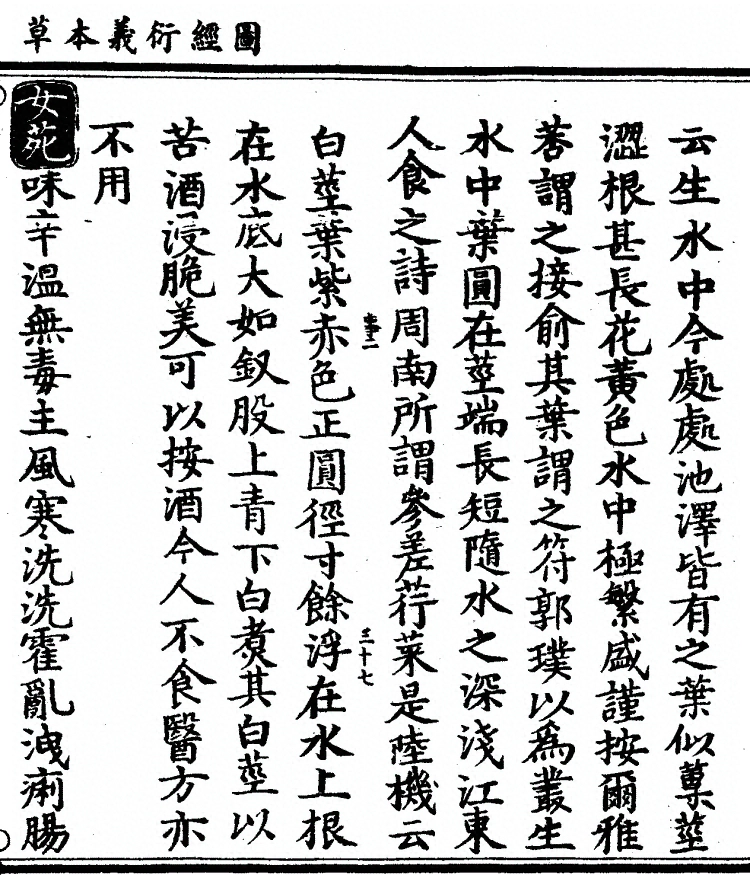 圖經衍義本草
云生水中今處處池澤皆有之葉似蓴莖
澀根甚長花黃色水中極繁盛謹按爾雅
莕謂之接俞其葉謂之符郭璞以爲叢生
水中葉圓在莖端長短隨水之深淺江東
人食之詩周南所謂參差荇菜是陸機云
白莖葉紫赤色正圓徑寸餘浮在水上根
在水底大如釵股上青下白煮其白莖以
苦酒浸脆美可以按酒今人不食醫方亦
不用
女菀味辛溫無毒主風寒洗洗霍亂洩痢腸
三十七